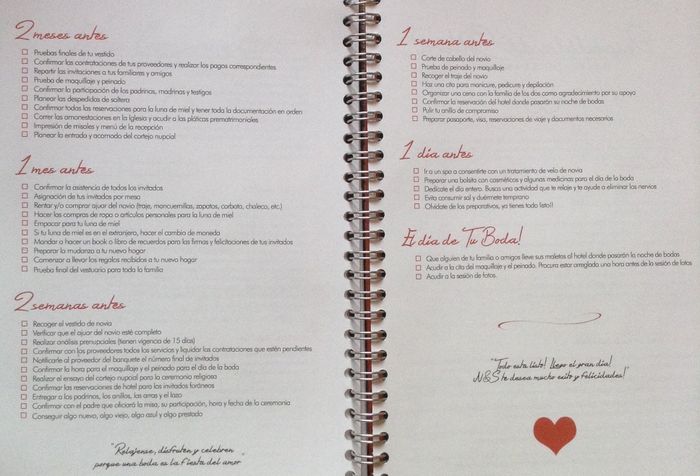 2 meses antes
Pruebas finales de tu vestido
Confirmar las contrataciones de tus proveedores y realizar los pagos correspondientes
Repartir las invitaciones a tus familiares y amigos
Prueba de maquillaje y peinado
Confirmar la participación de los padrinos, madrinas y testigos
Planear las despedidas de soltera
Confirmar todas las reservaciones para la luna de miel y tener toda la documentación en orden
Correr las amonestaciones en la Iglesia y acudir a las pláticas prematrimoniales
Impresión de misales y menú de la recepción
Planear la entrada y acomodo del cortejo nupcial
1 mes antes
Confirmar la asistencia de todos los invitados
Asignación de tus invitados por mesa
Rentar y/o comprar ajuar del novio (traje, mancuernillas, zapatos, corbata, chaleco, etc.)
Hacer las compras de ropa o artículos personales para la luna de miel
Empacar para tu luna de miel
Si tu luna de miel es en el extranjero, hacer el cambio de moneda
Mandar a hacer un book o libro de recuerdos para las firmas y felicitaciones de tus invitados
Preparar la mudanza a tu nuevo hogar
Comenzar a llevar los regalos recibidos a tu nuevo hogar
Prueba final del vestuario para toda la familia
2 semanas antes
Recoger el vestido de novia
Verificar que el ajuar del novio esté completo
Realizar análisis prenupciales (tienen vigencia de 15 días)
Confirmar con los proveedores todos los servicios y liquidar las contrataciones que estén pendientes
Notificarle al proveedor del banquete el número final de invitados
Confirmar la hora para el maquillaje y el peinado para el día de la boda
Realizar el ensayo del cortejo nupcial para la ceremonia religiosa
Confirmar las reservaciones de hotel para los invitados foráneos
Entregar a los padrinos, los anillos, las arras y el lazo
Confirmar con el padre que oficiará la misa, su participación, hora y fecha de la ceremonia
Conseguir algo nuevo, algo viejo, algo azul y algo prestado
"Relájense, disfruten y celebren
porque una boda es la fiesta del amor"
1 semana antes
Corte de cabello del novio
Prueba de peinado y maquillaje
Recoger el traje del novio
Haz una cita para manicure, pedicure y depilación
Organizar una cena con la familia de los dos como agradecimiento por su apoyo
Confirmar la reservación del hotel donde pasarán su noche de bodas
Pulir tu anillo de compromiso
Preparar pasaporte, visa, reservaciones de viaje y documentos necesarios
1 día antes
Ir a un spa a consentirte con un tratamiento de velo de novia
Preparar una bolsita con cosméticos y algunas medicinas para el día de la boda
Dedícate el día entero. Busca una actividad que te relaje y te ayude a eliminar los nervios
Evita consumir sal y duérmete temprano
Olvídate de los preparativos, ya tienes todo listo!!
El día de Tu Boda!
Que alguien de tu familia o amigos lleve sus maletas al hotel donde pasarán la noche de bodas
Acudir a la cita del maquillaje y el peinado. Procura estar arreglada una hora antes de la sesión de fotos
Acudir a la sesión de fotos.
"Todo esta listo! llego el gran día!
N&S te desea mucho exito y felicidades!"